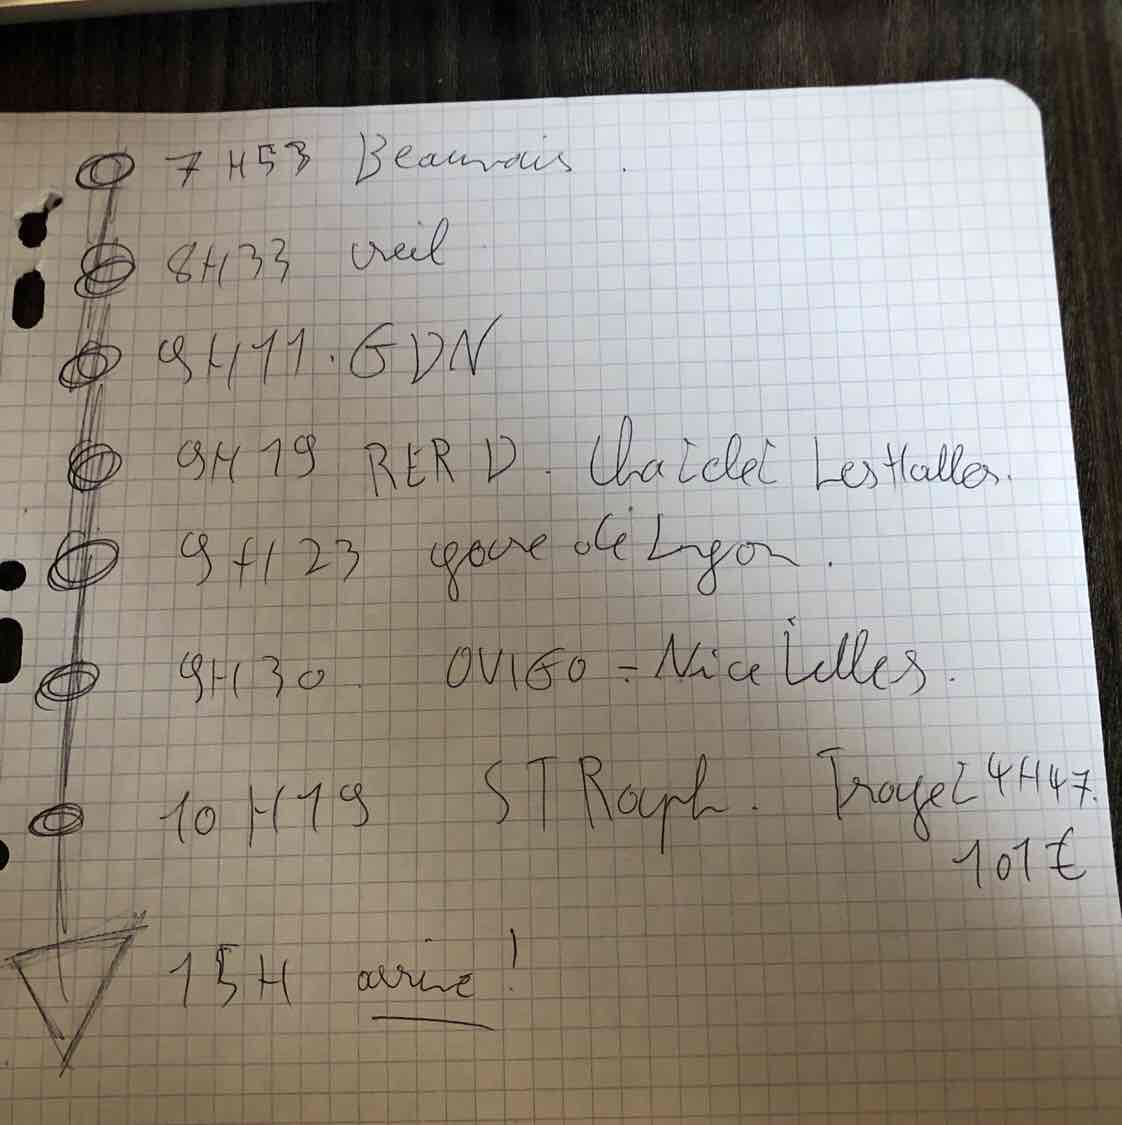 7H53 Beauvais.
8H33 creil
9H11. GDN
9H19 RER D. Chatelet Les Halles.
9H23 gare de Lyon.
9H30 OUIGO - Nice
10H19 ST Raph. Trajet 4H47.
101€
15H arrive!